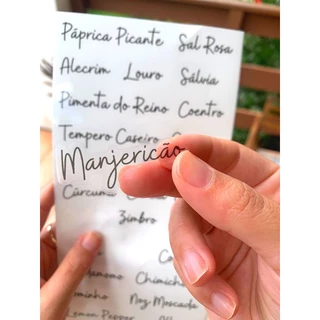 Páprica Picante Sal Rosa
Alecrim Louro Sálvia
Pimenta do Reino Coentro
Tempero Caseiro
Manjericão
Cúrcuma
Zimbro
Noz-Moscada
Lemon Pepper